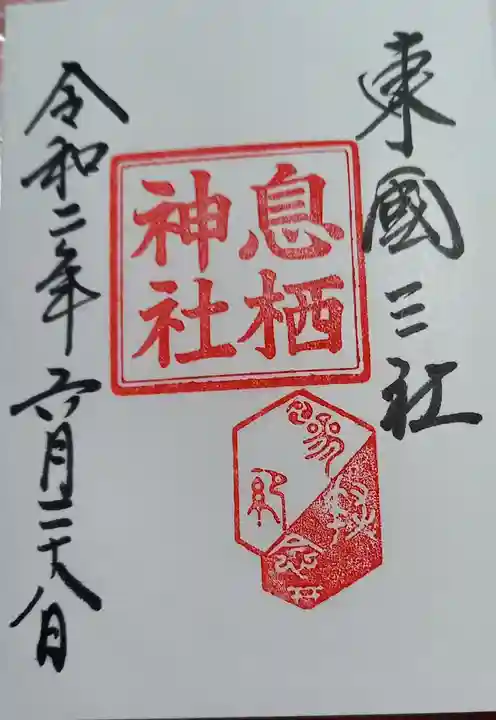 東國三社
息栖
神社
令和二年六月二十八日